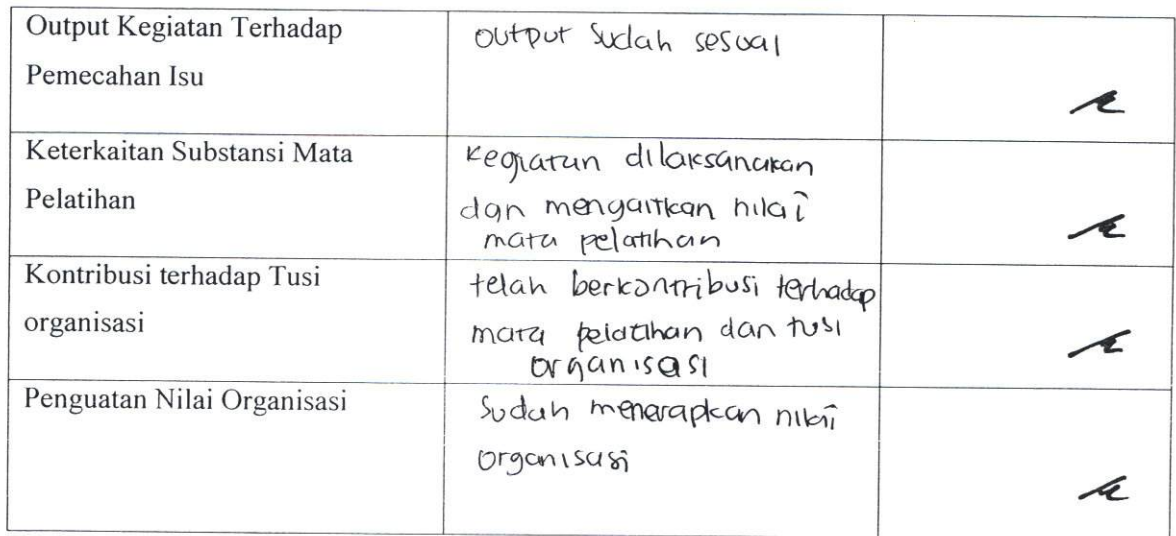 Output Kegiatan Terhadap
Pemecahan Isu
output sudah sesuai
Keterkaitan Substansi Mata
Pelatihan
Kegiatan dilaksanakan
dan mengaitkan nilai
mata pelatihan
Kontribusi terhadap Tusi
organisasi
telah berkontribusi terhadap
mata pelatihan dan tusi
organisasi
Penguatan Nilai Organisasi
Sudah menerapkan nilai
organisasi